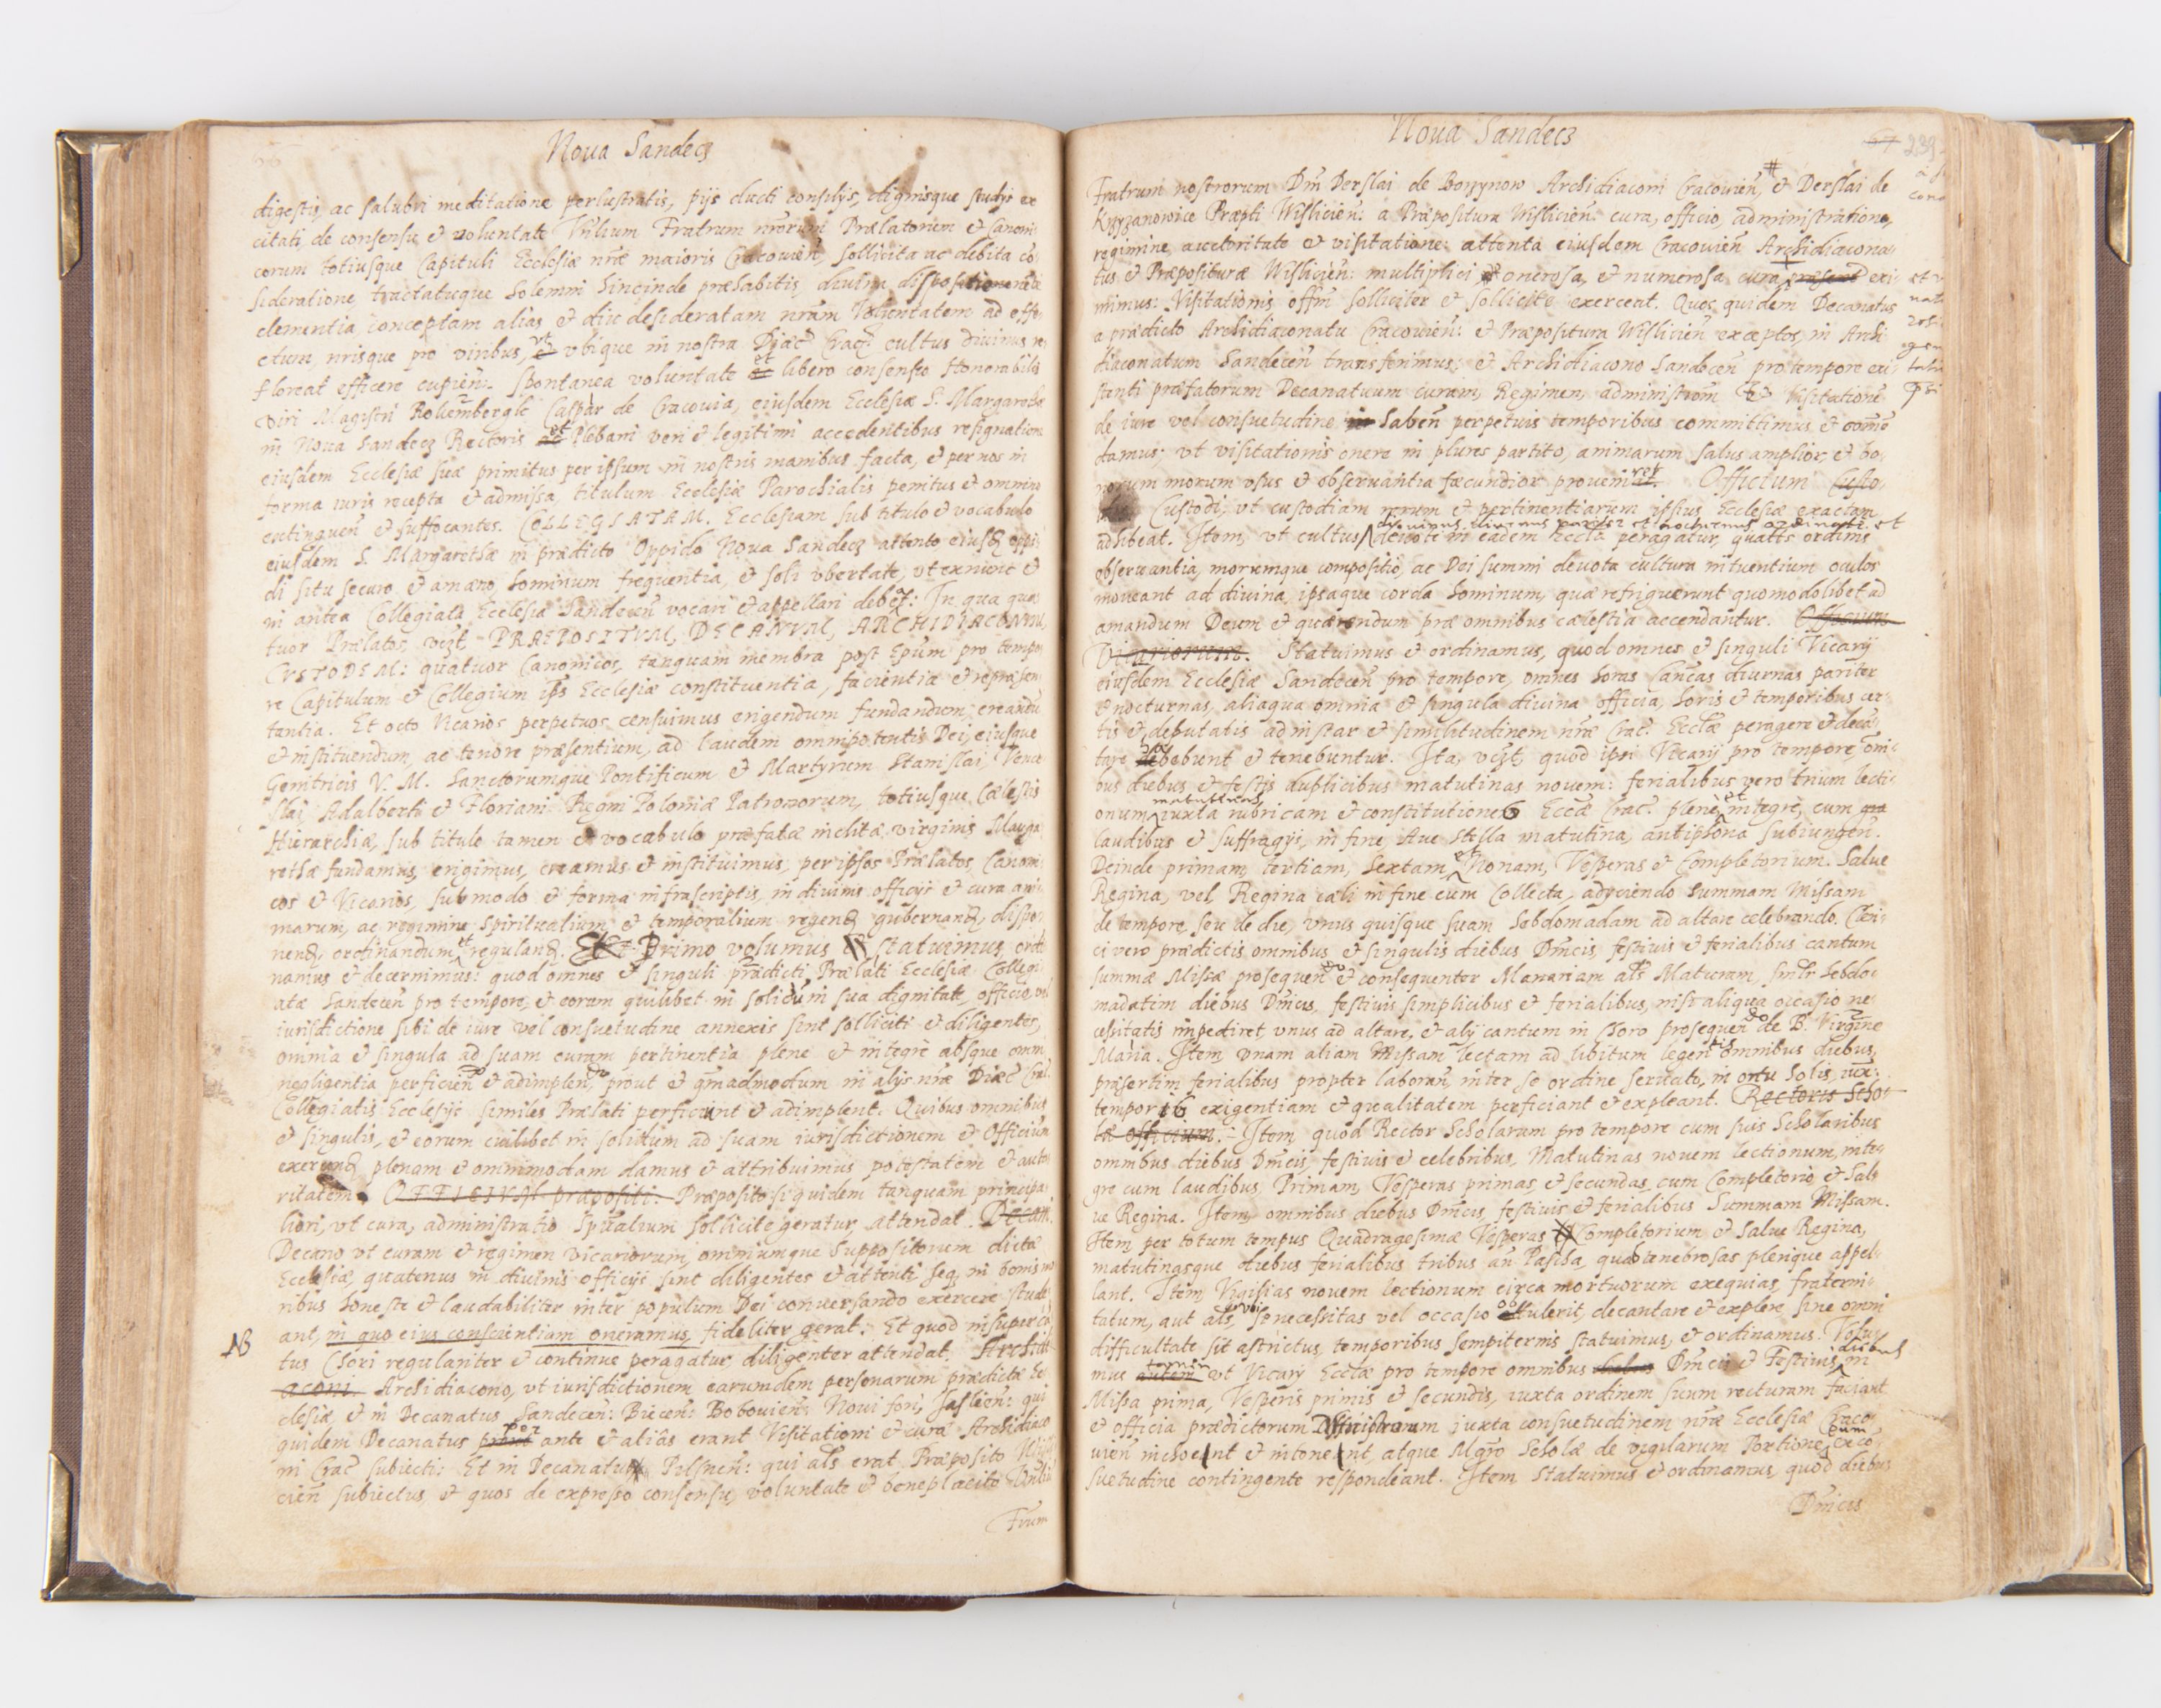 Noua Sandecz
digestis, ac salubri meditatione perlustratis, pijs ducti consilijs, dignisque studijs ex
citati, de consensu et voluntate Vnlium Fratrum nrorum Prælatorum et Canoni
corum totiusque Capituli Ecclesiæ nræ maioris Cracouien, sollicita ac debita co
sideratione tractatuque solemni hincinde præhabitis, diuina
clementia conceptam alias et diu desideratam nram Voluntatem ad effe
ctum, nrisque pro viribus, vt vbique in nostra Diæc Crac cultus diuinus re
floreat efficere cupien. Spontanea voluntate et libero consensu Honorabilis
viri Magistri Caspar de Cracouia, eiusdem Ecclesiæ S. Margarethæ
in Noua Sandecz Rectoris et Plebani veri et legitimi accedentibus resignatione
eiusdem Ecclesiæ suæ primitus per ipsum in nostris manibus facta, et per nos in
forma iuris recepta et admissa, titulum Ecclesiæ Parochialis penitus et omnino
extinguen et suffocantes. COLLEGIATAM. Ecclesiam sub titulo et vocabulo
eiusdem S. Margarethæ in prædicto Oppido Noua Sandecz attento eiusd oppi
di situ securo et amæno, hominum frequentia, et soli vbertate, vt exnunc et
in antea Collegiata Ecclesia Sandecen vocari et appellari debet: In qua qua
tuor Prælatos, vczt PRAEPOSITVM, DECANVM, ARCHIDIACONVM,
CVSTODEM: quatuor Canonicos, tanquam membra post Epum pro tempo
re Capitulum et Collegium ips Ecclesiæ constituentia, facientia et repræsen
tantia. Et octo Vicarios perpetuos censuimus erigendum fundandum, creandu
et instituendum, ac tenore præsentium, ad laudem omnipotentis Dei, eiusque
Genitricis V. M. Sanctorumque Pontificum et Martyrum Stanislai, Vence
slai, Adalberti et Floriani Regni Poloniæ Patronorum, totiusque Cælestis
Hierarchiæ, sub titulo tamen et vocabulo præfatæ inclitæ virginis Marga
rethæ fundamus, erigimus, creamus et instituimus, per ipsos Prælatos, Canoni
cos et Vicarios, sub modo et forma infrascriptis, in diuinis officijs et cura ani
marum, ac regimine spiritualium et temporalium regend gubernand, dispo
nend, ordinandum et reguland. Primo volumus statuimus ordi
namus et decernimus: quod omnes et singuli prædicti Prælati Ecclesiæ Collegi
atæ Sandecen pro tempore, et eorum quilibet in solidum in sua dignitate, officio, vel
iurisdictione sibi de iure vel consuetudine annexis sint solliciti et diligentes,
omnia et singula ad suam curam pertinentia plene et integre absque omni
negligentia perficien et adimplen, prout et qmadmodum in alijs nræ Diæc
Collegiatis Ecclesijs similes Prælati perficiunt et adimplent. Quibus omnibus
et singulis, et eorum cuilibet in solidum ad suam iurisdictionem et Officium
exerund plenam et omnimodam damus et attribuimus potestatem et auto
ritatem. OFFICIVM præpositi. Præposito siquidem tanquam principa
liori, vt cura, administratio Spiritualium sollicite geratur attendat. Decani.
Decano vt curam et regimen vicariorum, omniumque suppositorum dictæ
Ecclesiæ, quatenus in diuinis officijs sint diligentes et attenti seq in bonis mo
ribus honeste et laudabiliter inter populum Dei conuersando exercere stude
NB ant, in quo eius conscientiam oneramus, fideliter gerat. Et quod insuper ca
tus Chori regulariter et continue peragatur, diligenter attendat. Archidi
aconi. Archidiacono, vt iurisdictionem earumdem personarum prædictæ Ec
clesiæ, et in Decanatus Sandecen: Biecen: Bobouien: Noui fori, Jaslien: qui
quidem Decanatus ante et aliâs erant Visitationi et curæ Archidiaco
ni Crac subiecti: Et in Decanatu Pilsnen: qui als erat Præposito Wisli
cien subiectus, et quos de expresso consensu, voluntate et beneplacito
Frum
Noua Sandecz
239
Fratrum nostrorum Dni Derslai de Borzynow Archidiaconi Cracouien, et Derslai de
Præpti Wislicien: a Præpositura Wislicien. cura, officio, administratione,
regimine, auctoritate et visitatione: attenta eiusdem Cracouien Archidiacona
tus et Præposituræ Wislicien: multiplici onerosa, et numerosa cura exi
mimus: Visitationis offm solliciter et sollicite exerceat. Quos quidem Decanatus
a prædicto Archidiaconatu Cracouien: et Præpositura Wislicien exceptos, in Archi
diaconatum Sandecen transferimus: et Archidiacono Sandecen pro tempore exi
stenti præfatorum Decanatuum curam, Regimen, administrom et Visitatione
de iure vel consuetudine haben perpetuis temporibus committimus et
damus; vt visitationis onere in plures partito, animarum salus amplior, et bo
norum morum vsus et obseruantia fæcundior Officium Custo
Custodi, vt custodiam rerum et pertinentiarum ipsius Ecclesiæ exactam
diuinus diurnus pariter et nocturnus ordinate et
adhibeat. Item, vt cultus deuote in eadem Eccla peragatur, quatts ordinis
obseruantia, morumque compositio, ac Dei summi deuota cultura intuentium oculos
moueant ad diuina, ipsaque corda hominum, quæ refriguerunt quomodolibet ad
amandum Deum et quærendum præ omnibus cælestia accendantur. Officium
Vicariorum. Statuimus et ordinamus, quod omnes et singuli Vicarij
eiusdem Ecclesiæ Sandecen pro tempore, omnes horas Canicas diurnas pariter
et nocturnas, aliaqua omnia et singula diuina officia, horis et temporibus cer
tis et deputatis ad instar et similitudinem nræ Crac. Ecclæ peragere et decan
tare debebunt et tenebuntur. Ita, vczt, quod ipsi Vicarij pro tempore omi
bus diebus et festis duplicibus matutinas nouem: ferialibus vero trium lecti
matutinas
onum iuxta rubricam et constitutiones Eccæ Crac. plene et integre, cum
laudibus et suffragijs, in fine, Aue stella matutina, antiphona subiungen.
Deinde primam, tertiam, sextam, et Nonam, Vesperas et Completorium. Salue
Regina, vel, Regina cæli in fine cum Collecta, adijciendo summam Missam
de tempore, seu de die, vnus quisque suam hebdomadam ad altare celebrando. Cleri
ci vero prædictis omnibus et singulis diebus Dnicis, festiuis et ferialibus cantum
summæ Missæ prosequendo et consequenter Manuriam als Maturam, smlr hebdo
madatim diebus Dnicis, festiuis simplicibus et ferialibus, nisi aliqua occasio ne
cessitatis impediret, vnus ad altare, et alij cantum in choro prosequendo de B. Virgine
Maria. Item, vnam aliam Missam lectam ad libitum legentis omnibus diebus,
præsertim ferialibus propter laboran, inter se ordine seruato, in ortu Solis iux:
temporis exigentiam et qualitatem perficiant et expleant. Rectoris Scho
læ officium. Item, quod Rector Scholarum pro tempore cum suis Scholaribus
omnibus diebus Dnicis, festiuis et celebribus, Matutinas nouem lectionum, inte
gre cum laudibus, Primam, Vesperas primas et secundas, cum Completorio, et Sal
ue Regina. Item, omnibus diebus Dnicis, festiuis et ferialibus Summam Missam.
Item per totum tempus Quadragesimæ Vesperas Completorium et Salue Regina,
matutinasque diebus ferialibus tribus an Pascha, quas tenebrosas plerique appel
lant. Item, Vigilias nouem lectionum circa mortuorum exequias, fraterni
tatum, aut als, vbi necessitas vel occasio obtulerit, decantare et explere sine omni
difficultate sit astrictus, temporibus sempiternis statuimus, et ordinamus. Volu
mus vt Vicarij Ecclæ pro tempore omnibus Dnicis et Festiuis diebus in
Missa prima, Vesperis primis et secundis, iuxta ordinem suum recturam faciant
et officia prædictorum iuxta consuetudinem nræ Ecclesiæ Craco
uien inchoent et intonent, atque Mgro Scholæ de regularum Portione cum ex co
suetudine contingente respondeant. Item statuimus et ordinamus, quod diebus
Dnicis